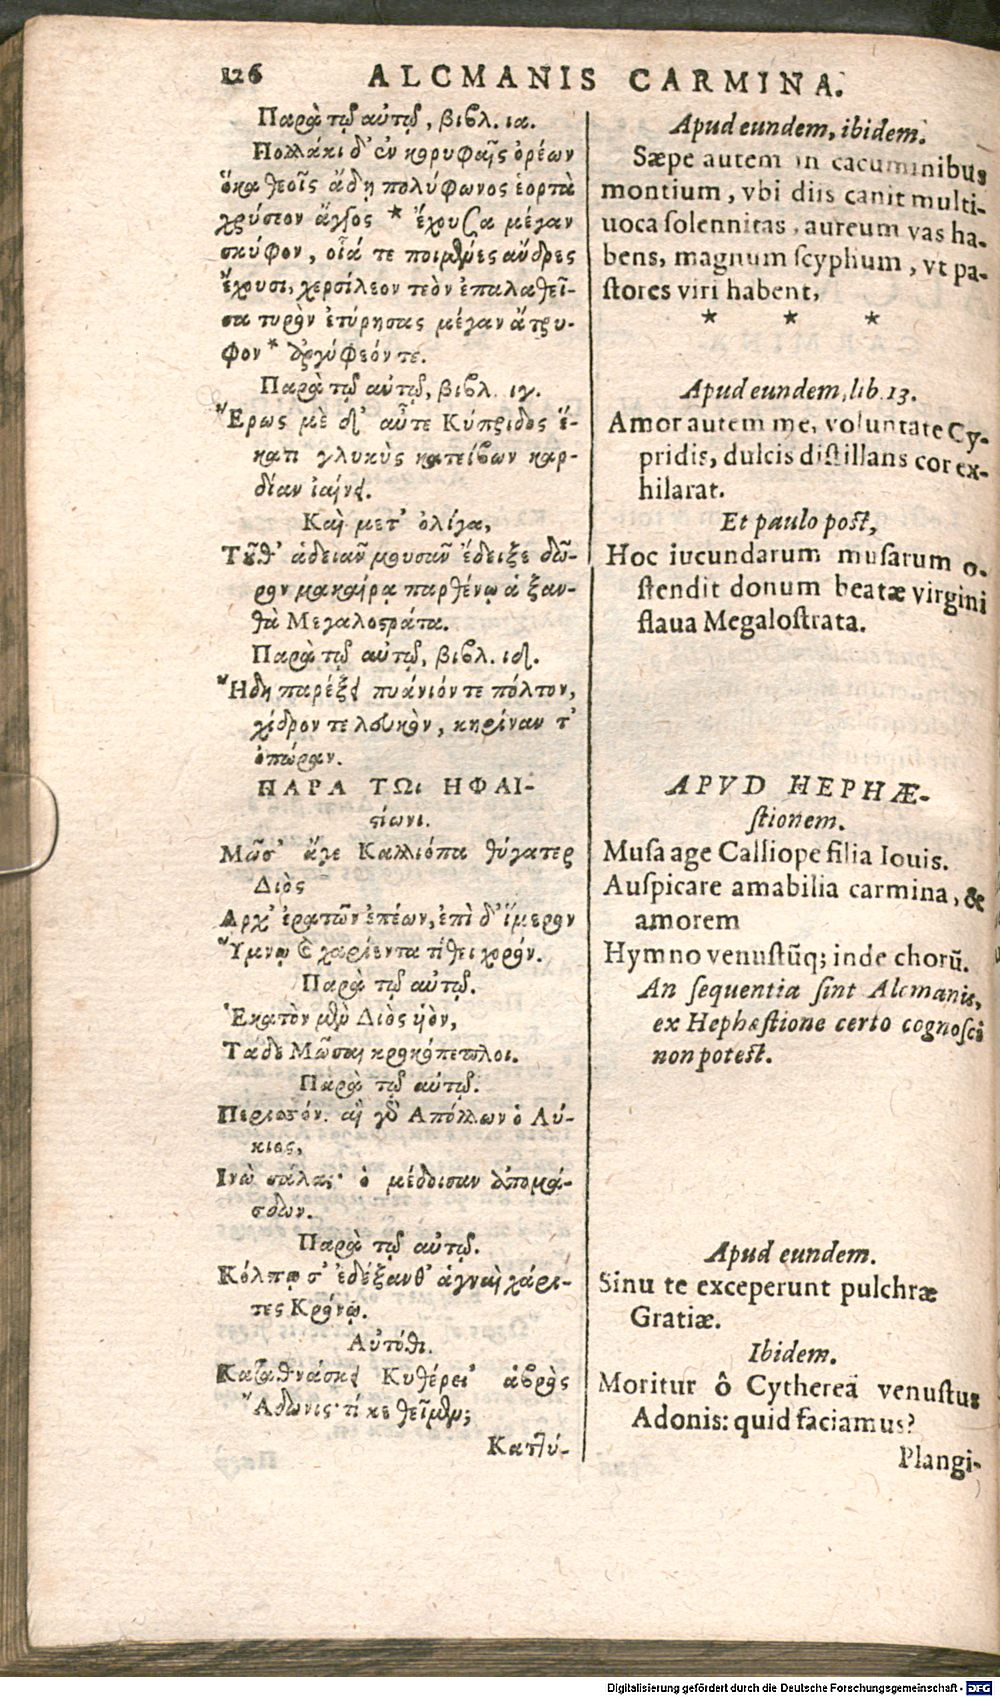 126 ALCMANIS CARMINA.
Παρὰ τῷ αὐτῷ, βιβλ. ια.
Πολλάκι δ' ἐν κορυφαῖς ὀρέων
ὅκα θεοῖς ἅδῃ πολύφωνος ἑορτὰ
χρύσιον ἄγγος * ἔχουσα μέγαν
σκύφον, οἷά τε ποιμένες ἄνδρες
ἔχουσι, χερσὶλεον τεὸν ἐπαλαθεῖ-
σα τυρὸν ἐτύρησας μέγαν ἄτρυ-
φον * ἀργύφεόν τε.
Παρὰ τῷ αὐτῷ, βιβλ. ιγ.
Ἔρως μὲ δ' αὖτε Κύπριδος ἕ-
κατι γλυκὺς κατείβων καρ-
δίαν ἰαίνει.
Καὶ μετ' ὀλίγα,
Τοῦθ' ἁδειᾶν μουσᾶν ἔδειξε δῶ-
ρον μακαίρᾳ παρθένῳ ἁ ξαν-
θὰ Μεγαλοστράτα.
Παρὰ τῷ αὐτῷ, βιβλ. ιδ.
Ἤδη παρέξει πυάνιόν τε πόλτον,
χίδρον τε λευκὸν, κηρίναν τ'
ὀπώραν.
ΠΑΡΑ ΤΩι ΗΦΑΙ-
στίωνι.
Μῶσ' ἄγε Καλλιόπα θύγατερ
Διὸς
Αρχ' ἐρατῶν ἐπέων, ἐπὶ δ' ἵμερον
Ὕμνῳ καὶ χαρίεντα τίθει χορόν.
Παρὰ τῷ αὐτῷ.
Ἑκατὸν μὲν Διὸς υἱὸν,
Τάδε Μῶσαι κροκόπεπλοι.
Παρὰ τῷ αὐτῷ.
Περισσόν. αἲ γὰρ Απόλλων ὁ Λύ-
κιος,
Ινὼ σάλας· ὁ μέδοισαν ἀπομά-
σδων.
Παρὰ τῷ αὐτῷ.
Κόλπῳ σ' ἐδέξανθ' ἁγναὶ χάρι-
τες Κρόνῳ.
Αὐτόθι.
Καταθνάσκει Κυθέρει' ἁβρὸς
Ἄδωνις· τί κε θεῖμεν;
Κατλύ-
Apud eundem, ibidem.
Sæpe autem in cacuminibus
montium, vbi diis canit multi-
uoca solennitas, aureum vas ha-
bens, magnum scyphum, vt pa-
stores viri habent,
* * *
Apud eundem, lib. 13.
Amor autem me, voluntate Cy-
pridis, dulcis distillans cor ex-
hilarat.
Et paulo post,
Hoc iucundarum musarum o-
stendit donum beatæ virgini
flaua Megalostrata.
APVD HEPHÆ-
stionem.
Musa age Calliope filia Iouis.
Auspicare amabilia carmina, &
amorem
Hymno venustũq; inde chorũ.
An sequentia sint Alcmanis,
ex Hephæstione certo cognosci
non potest.
Apud eundem.
Sinu te exceperunt pulchræ
Gratiæ.
Ibidem.
Moritur ô Cytherea venustus
Adonis: quid faciamus?
Plangi-
Digitalisierung gefördert durch die Deutsche Forschungsgemeinschaft - DFG